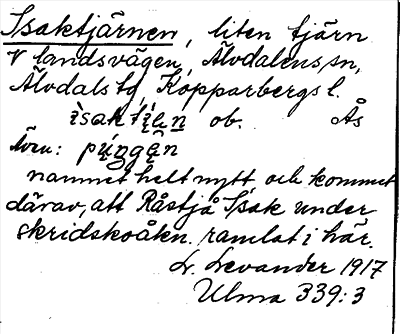 Isaktjärnen, liten tjärn
V landsvägen, Älvdalens sn,
Älvdals tg, Kopparbergs l.
ob. Ås
Även: púngen
namnet helt nytt och kommet
därav, att Råstjå Isak under
skridskoåkn. ramlat i här.
L. Levander 1917
Ulma 339:3